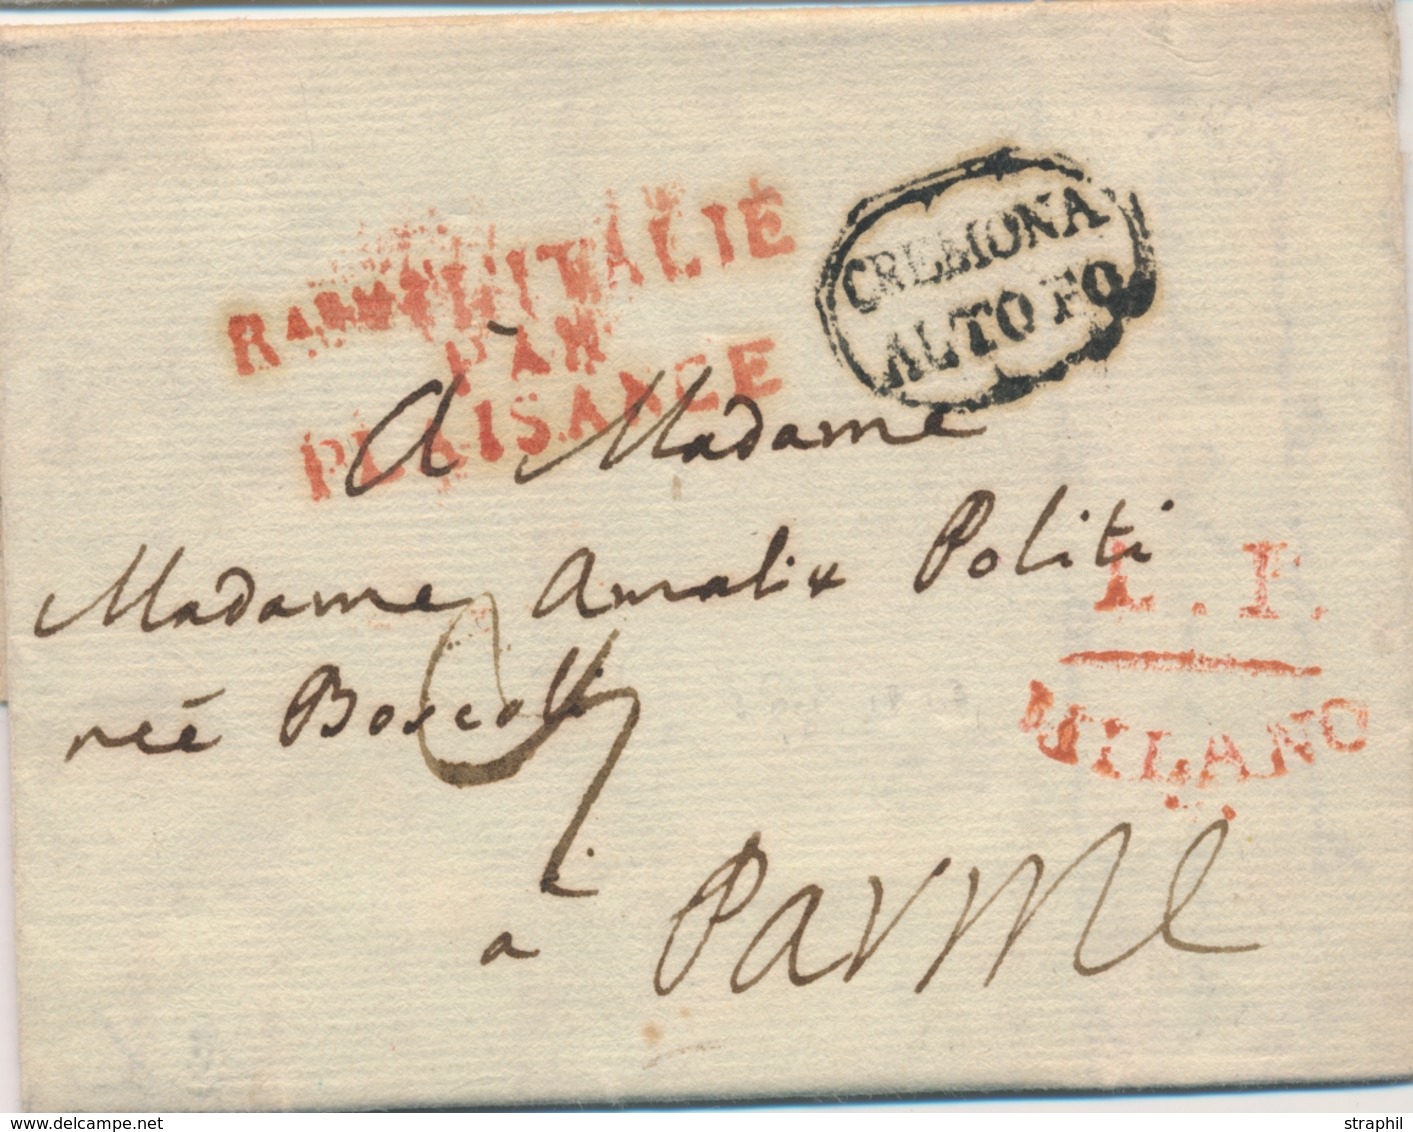 CREMONA
ALTO PO
R. D'ITALIE
PAR
PLAISANCE
A Madame
Madame Amalie Politi
née Boscolli
L. I.
MILANO
à Parme
www.delcampe.net
straphil